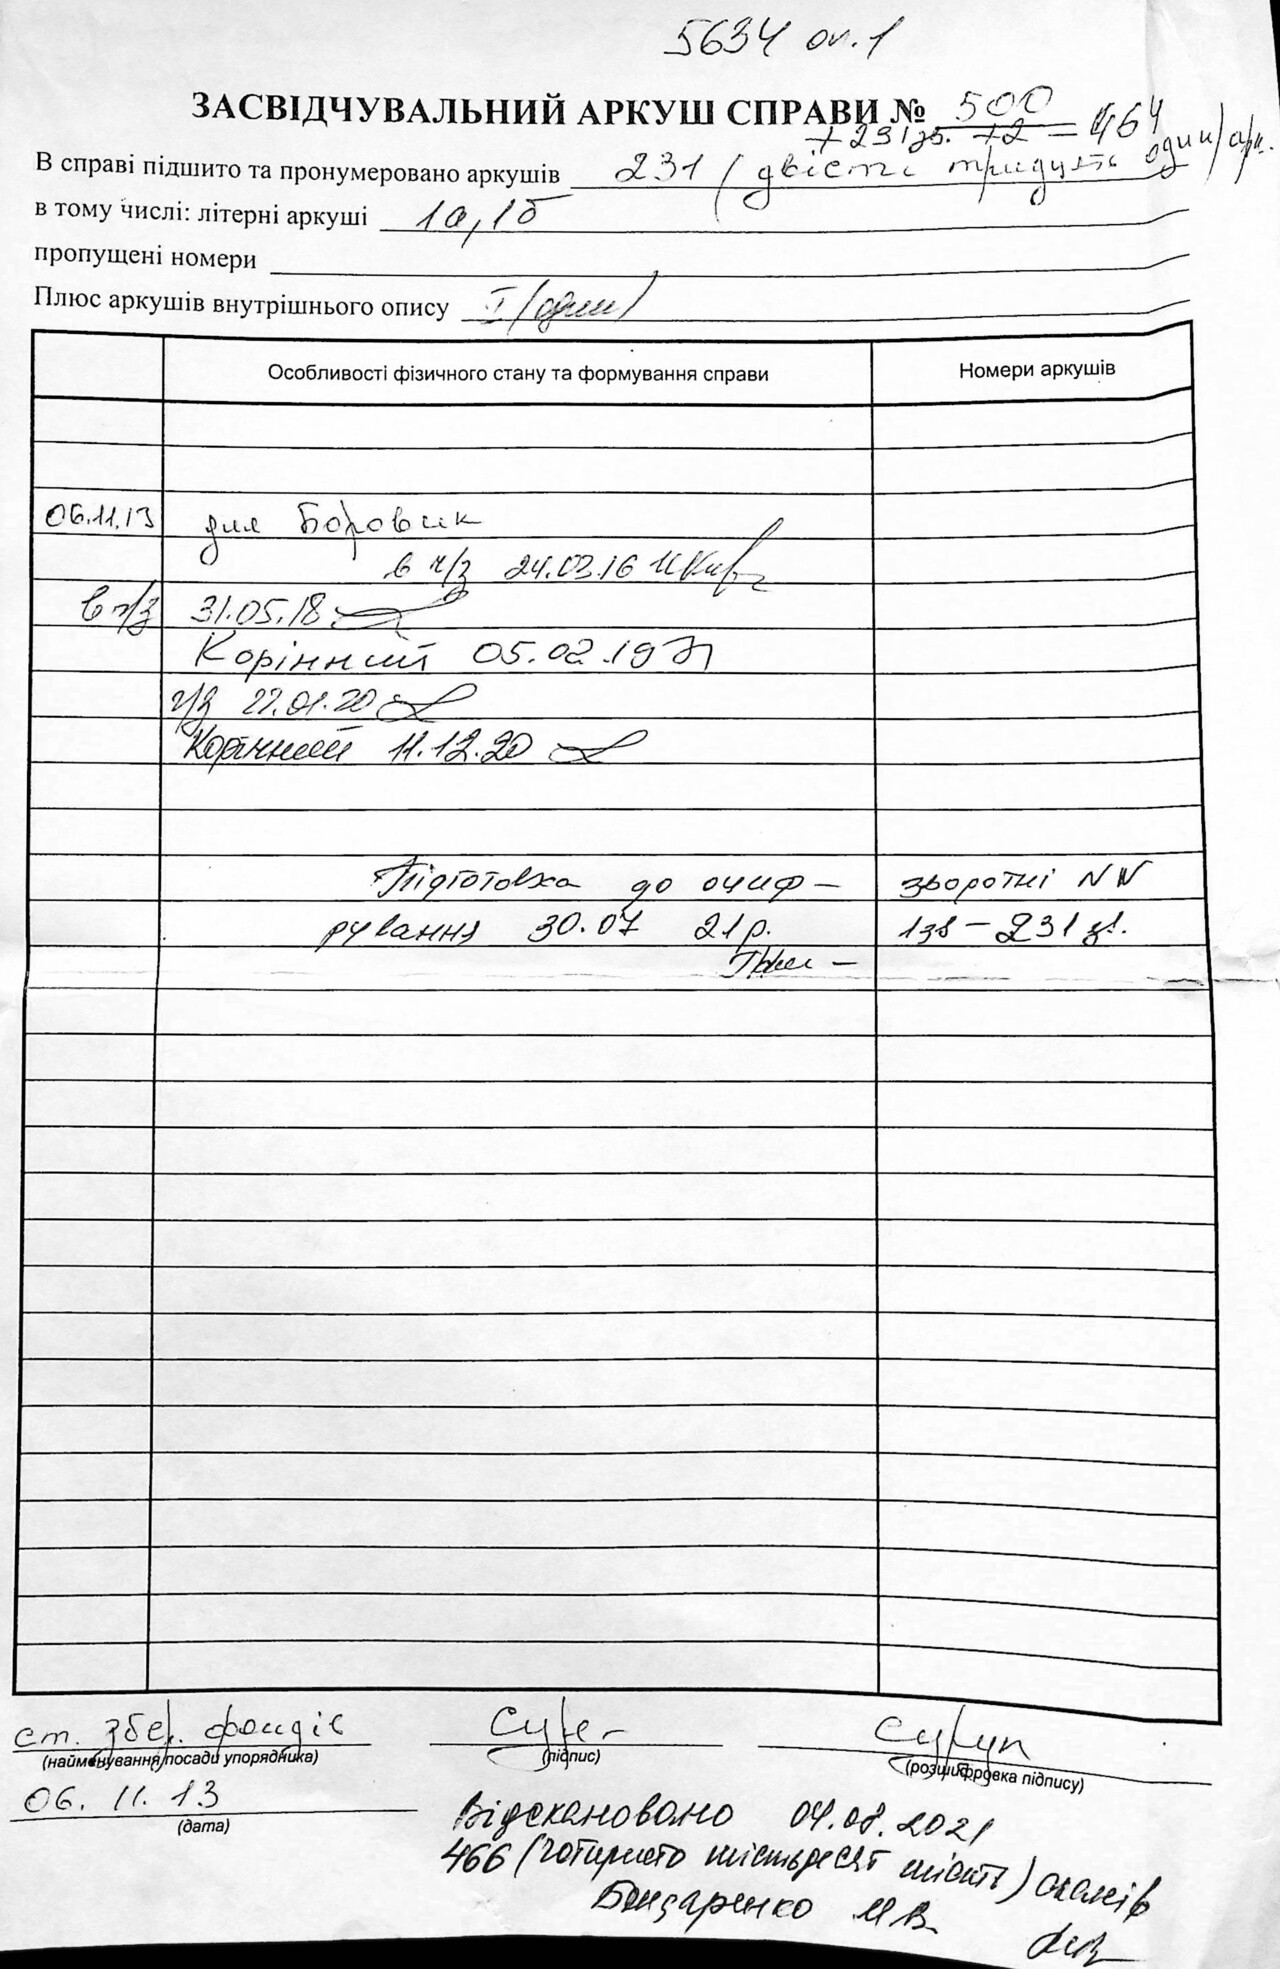 5634 оп.1
ЗАСВІДЧУВАЛЬНИЙ АРКУШ СПРАВИ № 500
+ 231 зв. +2 = 464
В справі підшито та пронумеровано аркушів 231 (двісті тридцять один) арк.
в тому числі: літерні аркуші 1а, 1б
пропущені номери
Плюс аркушів внутрішнього опису I (один)
Особливості фізичного стану та формування справи Номери аркушів
06.11.13 для Боровик
в ч/з 24.03.16
в ч/з 31.05.18
Корінний 05.02.19
ч/з 22.01.20
Корінний 11.12.20
Підготовка до оциф – зворотні NN
рування 30.07 21р. 1зв – 231 зв.
ст. збер. фондів
(найменування посади упорядника) (підпис) (розшифровка підпису)
06.11.13
(дата)
Відскановано 04.08.2021
466 (чотиристо шістдесят шість) сканів
Бондаренко М В